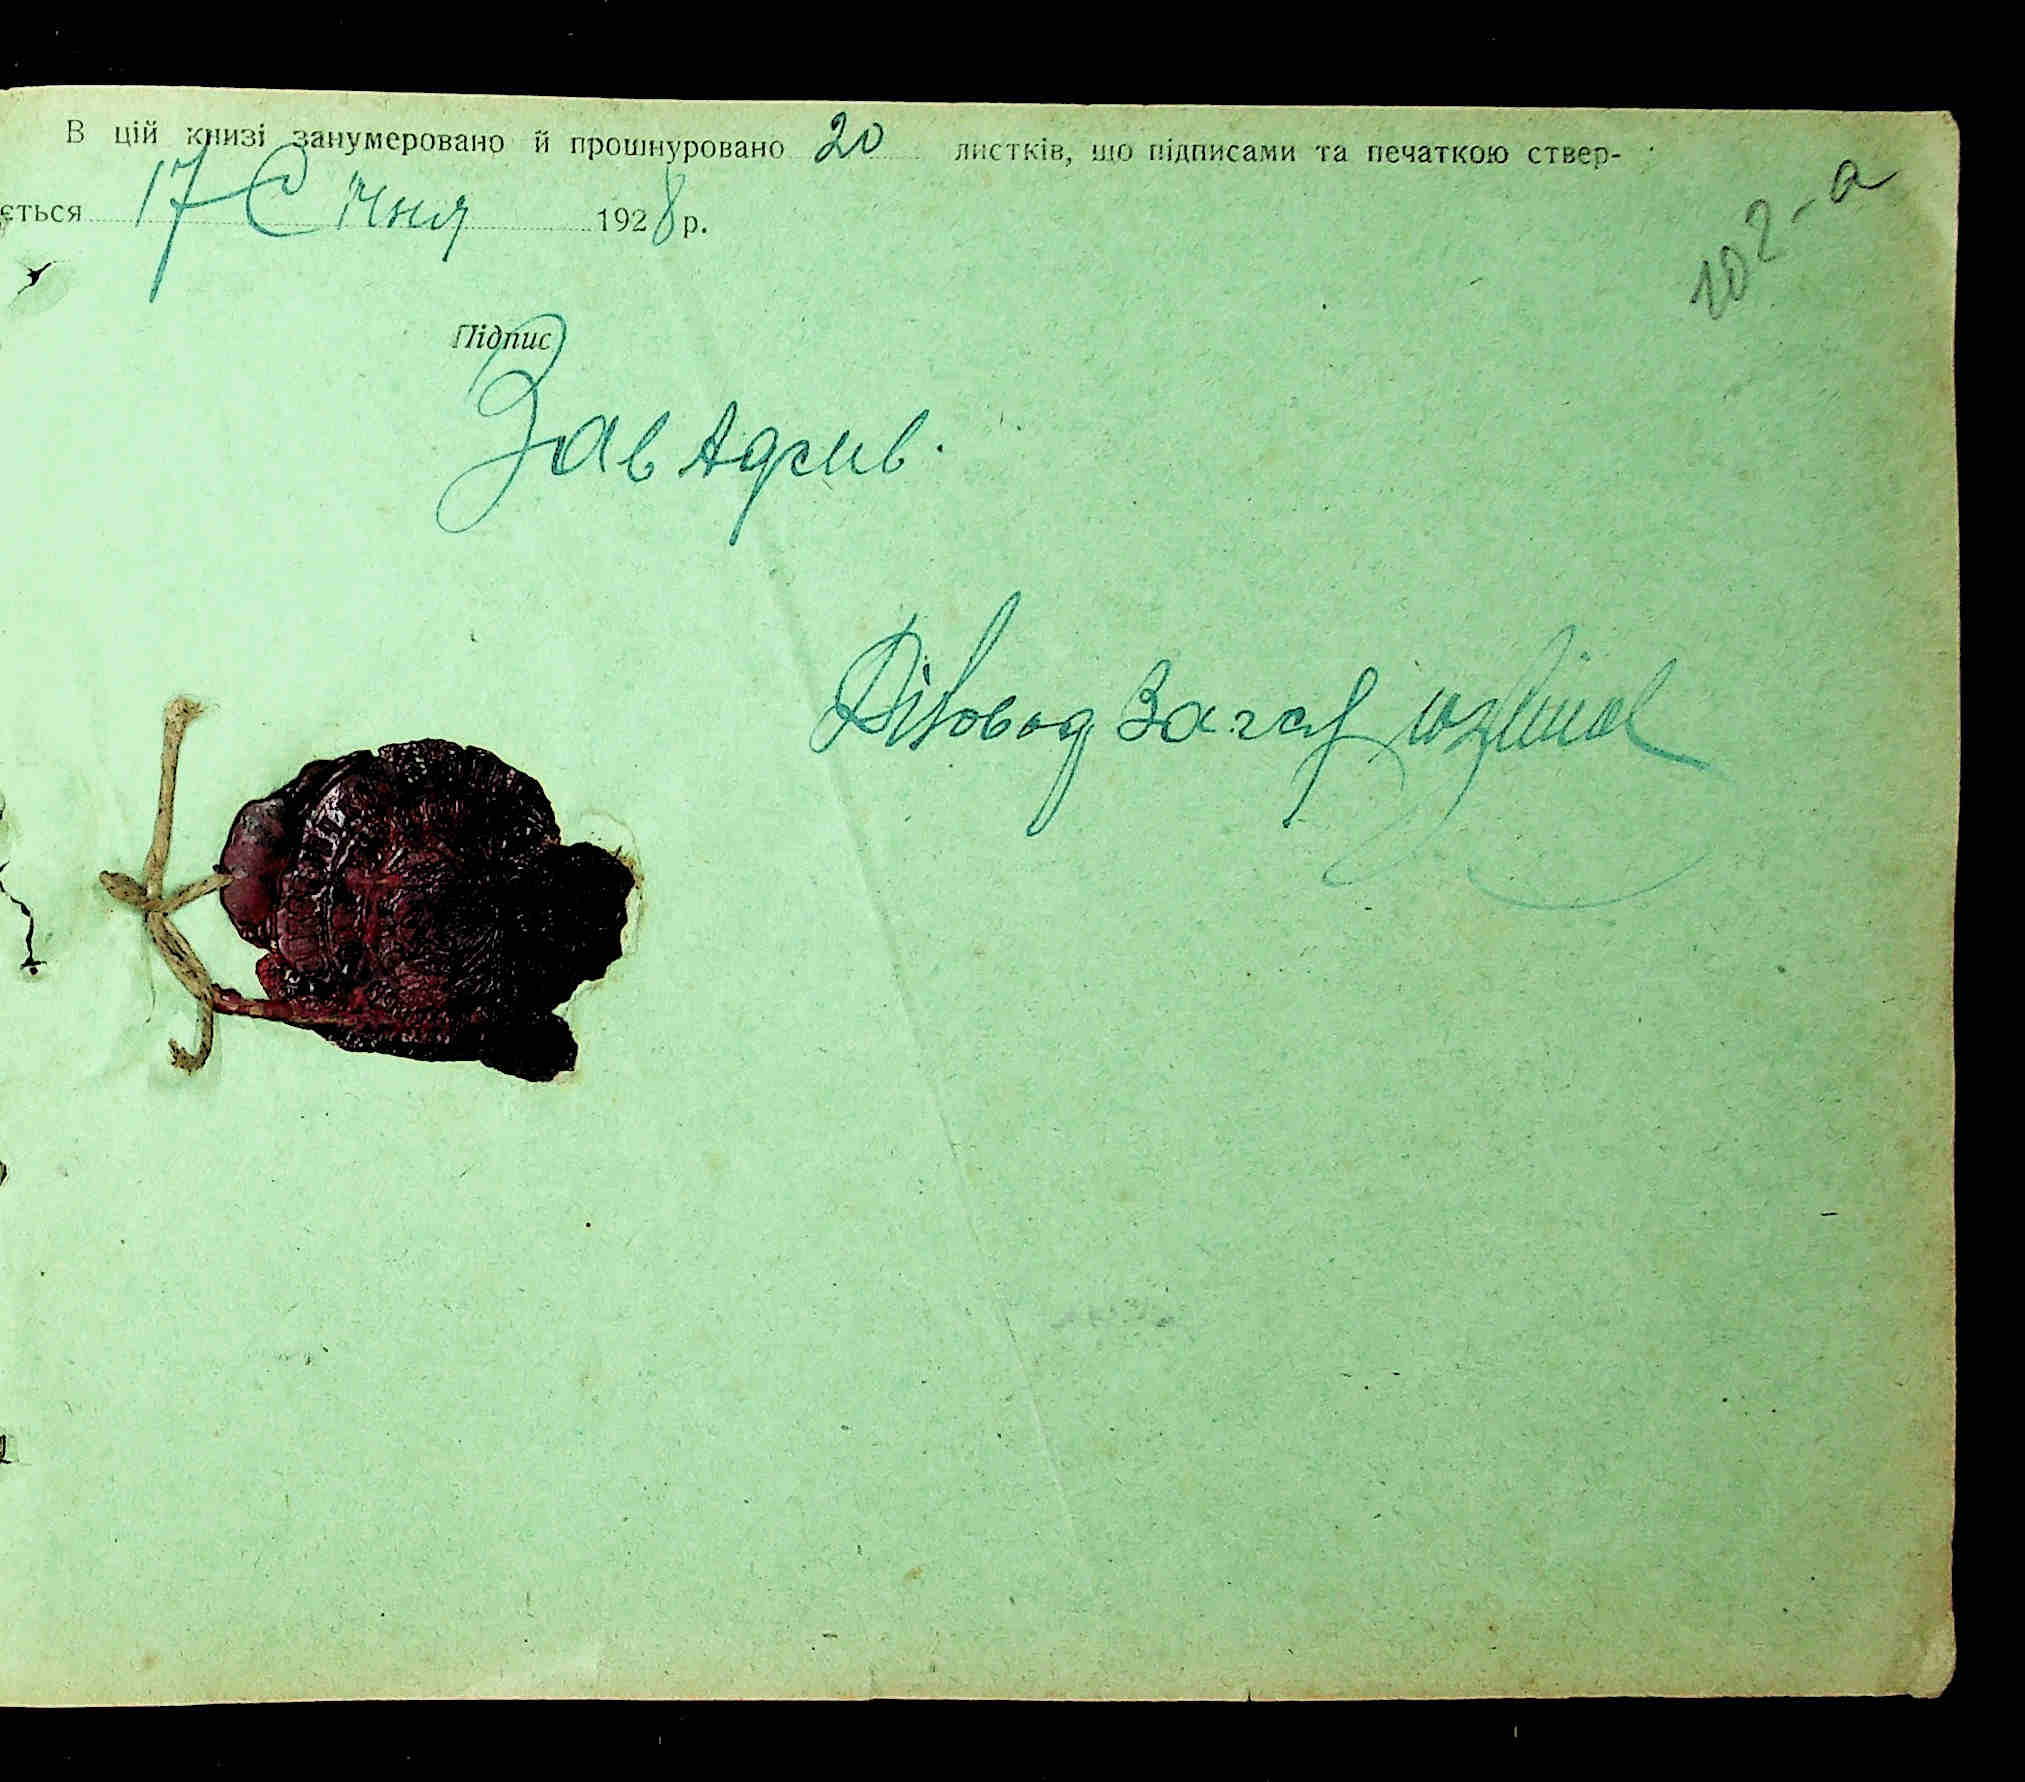 В цій книзі занумеровано й прошнуровано 20 листків, що підписами та печаткою ствер-
ється 17 Січня 1928 р.
102-а
Підпис
Зав Адмв.
Діловод Загс